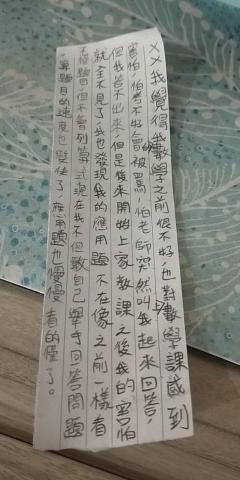 ××我覺得我數學之前很不好,也對數學課感到
害怕,怕考不好會被罵,怕老師突然叫我起來回答,
但我答不出來,但是後來開始上家教課之後我的害怕
就全不見了,我也發現我的應用題不在像之前一樣看
不懂題目,但不會列算式,現在我不但敢自己舉手回答問題
,算題目的速度也變快了,應用題也慢慢看的懂了。